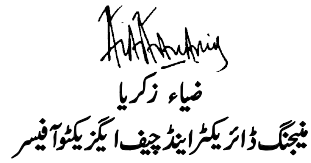 ضیاء زکریا
منیجنگ ڈائریکٹر اینڈ چیف ایگزیکٹو آفیسر